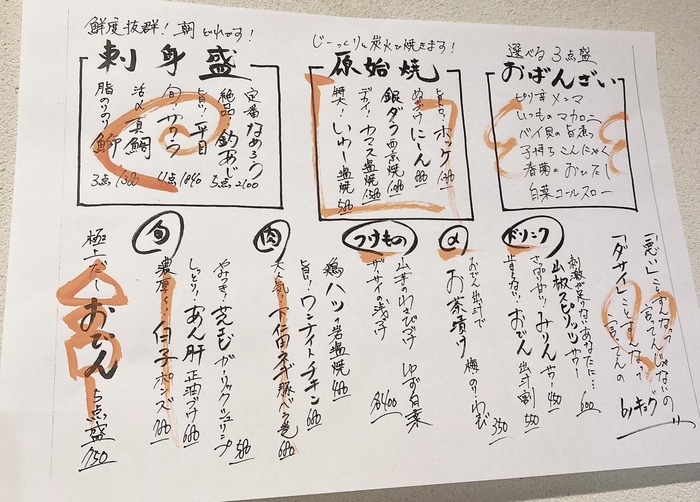 鮮度抜群！朝どれです！
刺身盛
定番なめろう
絶品 釣あじ
旨い 平目
旬！サワラ
活〆真鯛
脂のりのり 鰤
3点 1380
4点 1840
5点 2100
じーっくりと炭火で焼きます！
原始焼
ホッケ
にしん
銀ダラ西京焼
デカイ！カマス塩焼
特大！いわし塩焼 580
選べる3点盛
おばんざい
ピリ辛メンマ
いつものマカロニ
バイ貝の旨煮
子持ちこんにゃく
春菊のおひたし
白菜コールスロー
「悪い」ことすんなって言ってんじゃないの
「ダサイ」ことすんなって言ってんの
byキング
ドリンク
刺激が足りないあなたに…
山椒スピリッツサワー 600
さっぱり甘い みりんサワー 450
止まらない！おでん出汁割 550
〆
おでん出汁で
お茶漬け 梅 のり わさび 350
つけもの
山芋のわさび漬け ゆず白菜
ザーサイの浅漬け
各400
肉
鶏ハツの岩塩焼 480
旨い！ワンナイトチキン 680
大人気！下仁田ネギ豚バラ巻 680
旬
やみつき！芝エビガーリックシュリンプ 580
しっとり！あん肝正油づけ 680
濃厚〜！白子ポンズ 780
極上だし おでん 5点盛 750